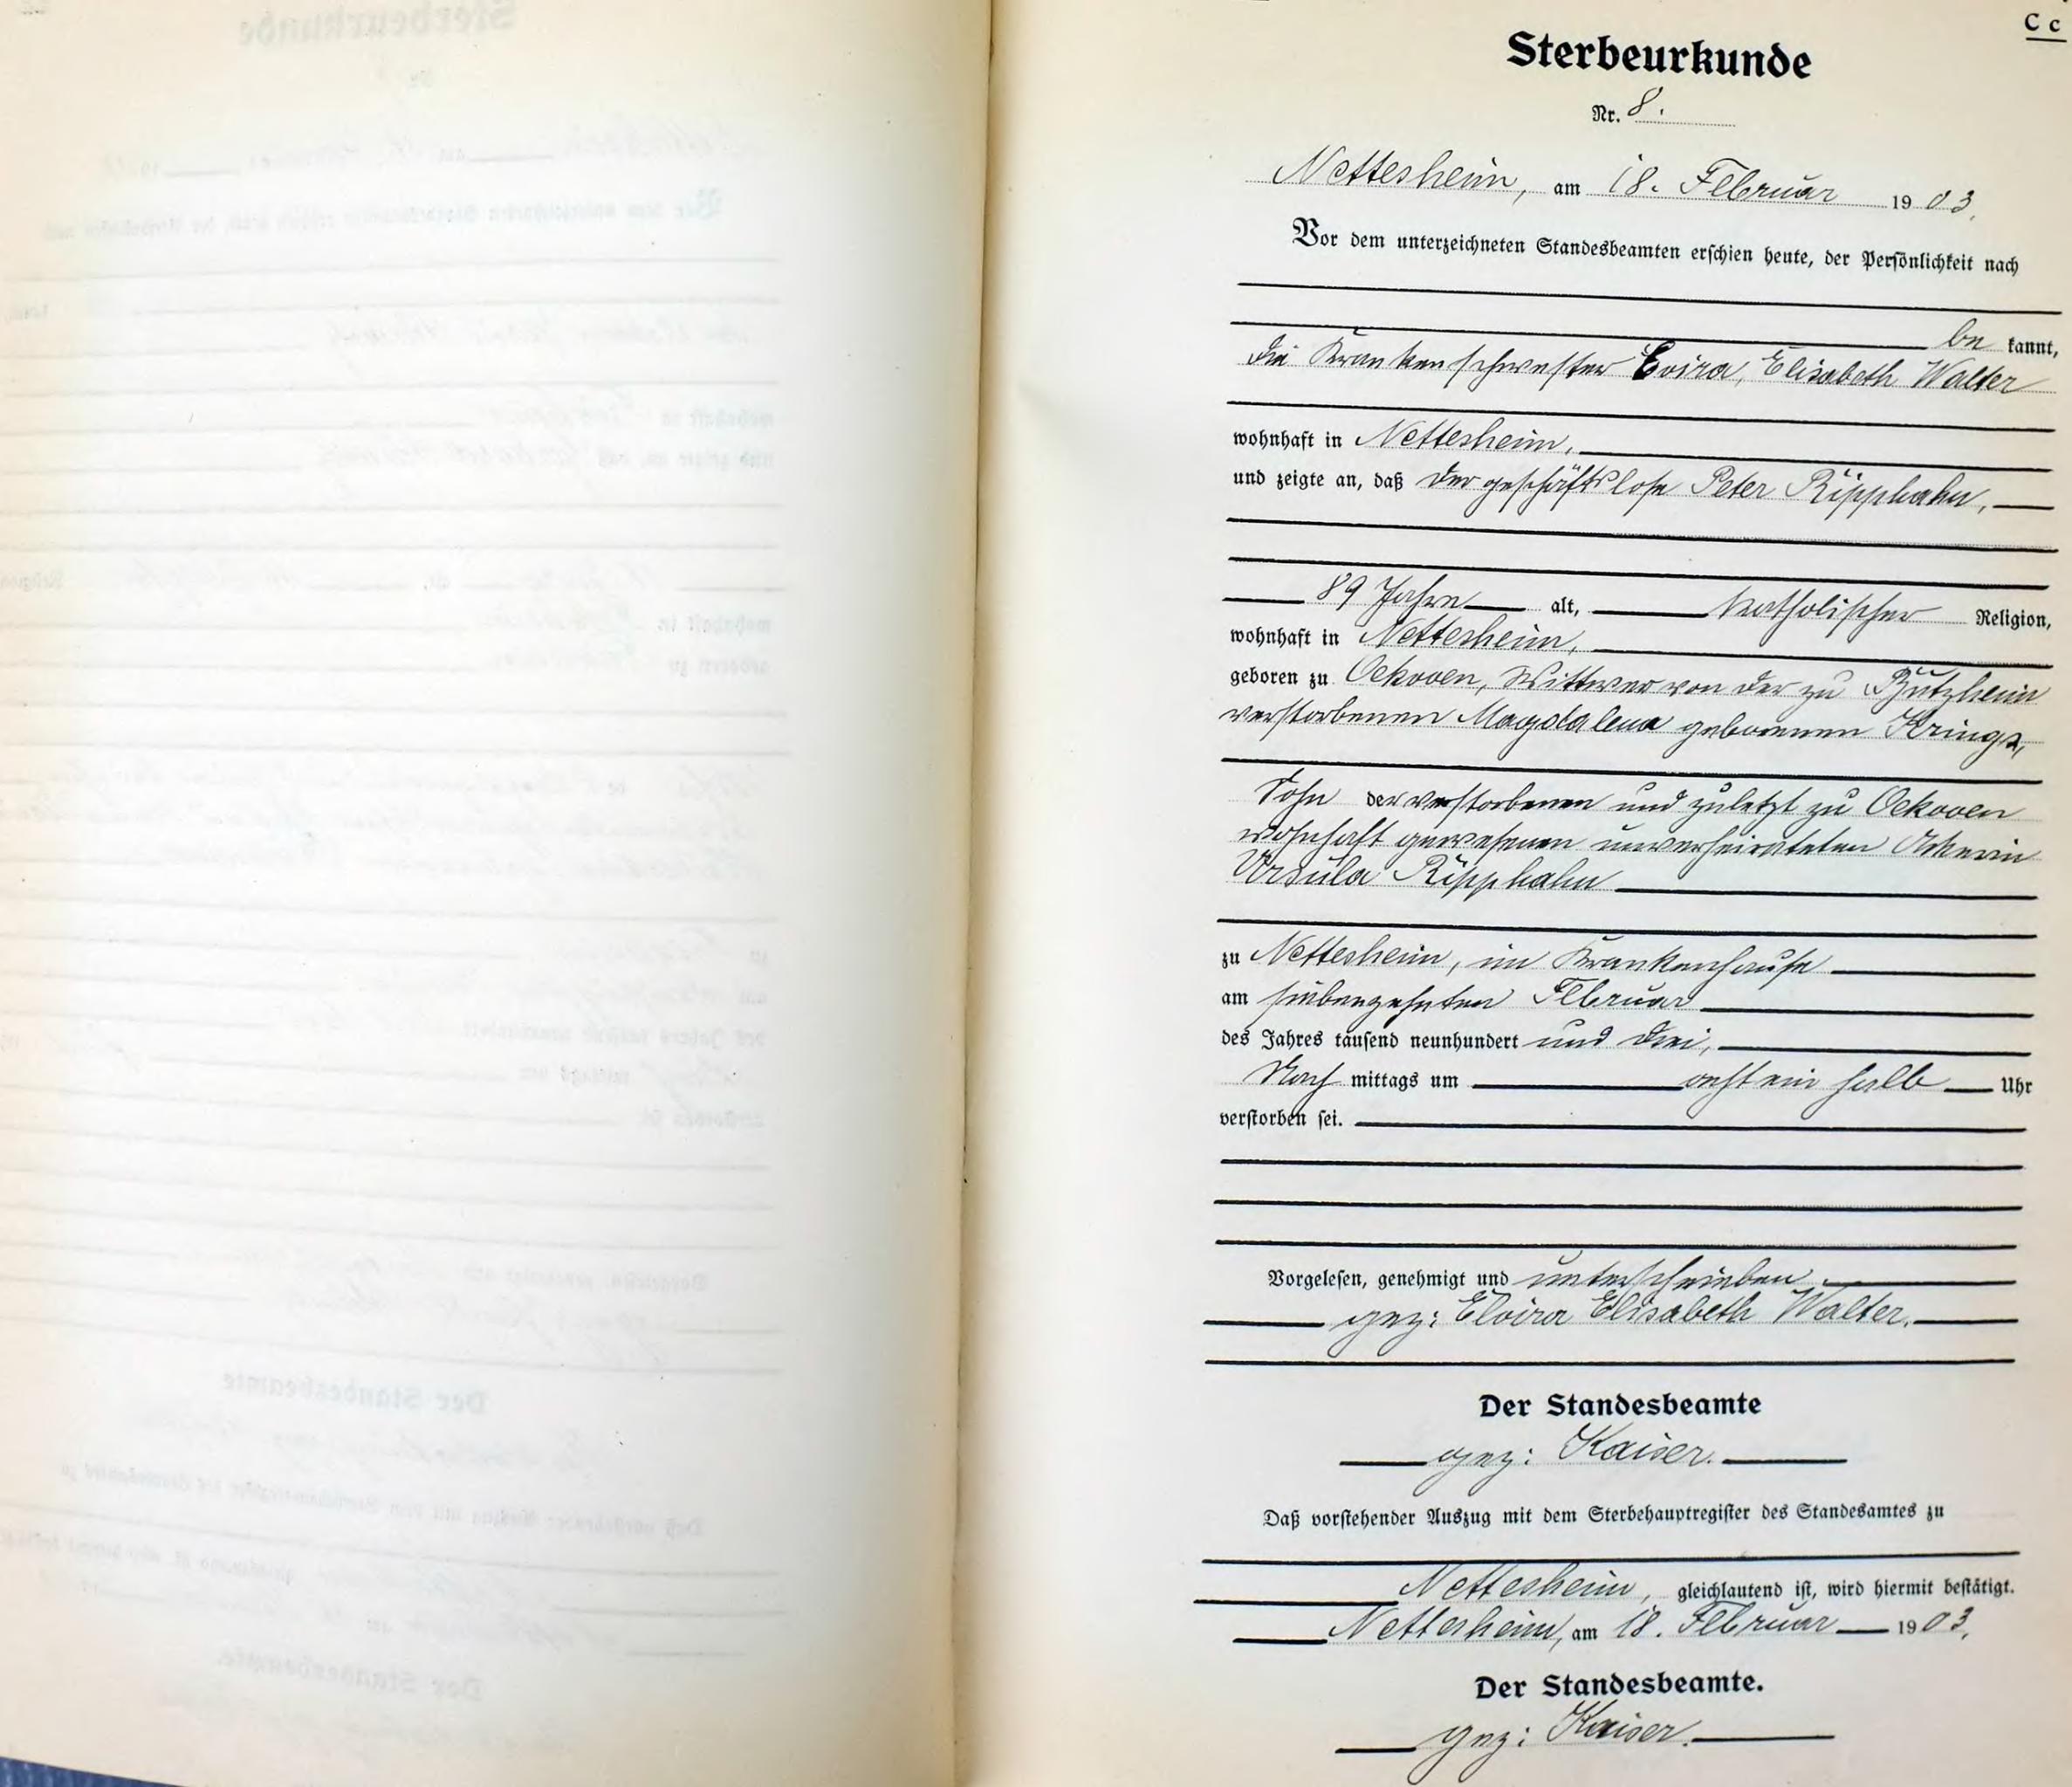 C c
Sterbeurkunde
Nr. 8.
Nettesheim, am 18. Februar 1903.
Vor dem unterzeichneten Standesbeamten erschien heute, der Persönlichkeit nach
be kannt,
die Krankenschwester Evira, Elisabeth Walter
wohnhaft in Nettesheim,
und zeigte an, daß der geschäftslose Peter Ripphahn,
89 Jahre alt, katholischer Religion,
wohnhaft in Nettesheim,
geboren zu Oekoven, Wittwer von der zu Bützheim
verstorbenen Magdalena geborenen Krings,
Sohn der verstorbenen und zuletzt zu Oekoven
wohnhaft gewesenen unverheirateten Ackerin
Ursula Ripphahn
zu Nettesheim, im Krankenhause
am siebenzehnten Februar
des Jahres tausend neunhundert und drei,
Nach mittags um acht ein halb Uhr
verstorben sei.
Vorgelesen, genehmigt und unterschrieben
gez: Elvira Elisabeth Walter.
Der Standesbeamte
gez: Kaiser.
Daß vorstehender Auszug mit dem Sterbehauptregister des Standesamtes zu
Nettesheim, gleichlautend ist, wird hiermit bestätigt.
Nettesheim, am 18. Februar 1903.
Der Standesbeamte.
gez: Kaiser.